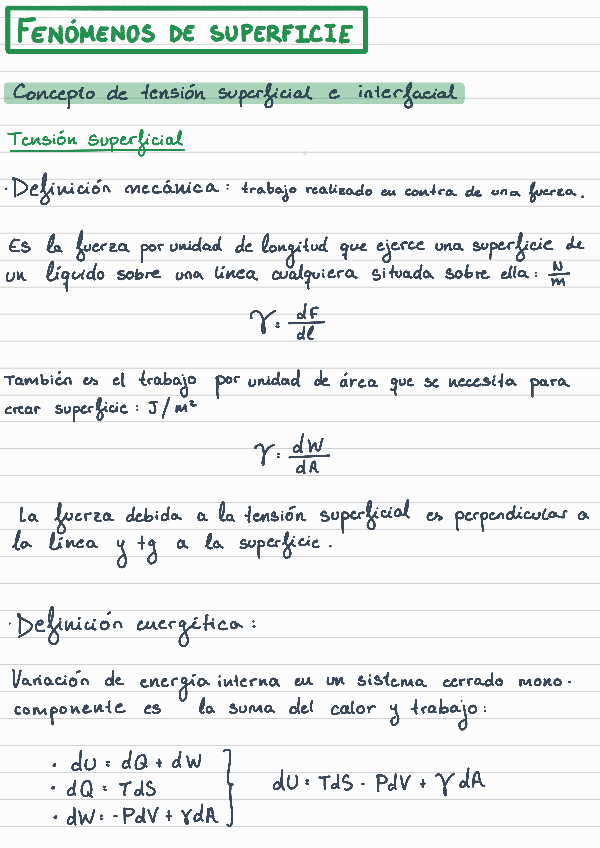 FENÓMENOS DE SUPERFICIE
Concepto de tensión superficial e interfacial
Tensión superficial
· Definición mecánica: trabajo realizado en contra de una fuerza.
Es la fuerza por unidad de longitud que ejerce una superficie de
un líquido sobre una línea cualquiera situada sobre ella: N/m
γ = dF/dl
También es el trabajo por unidad de área que se necesita para
crear superficie: J/m²
γ = dW/dA
La fuerza debida a la tensión superficial es perpendicular a
la línea y tg a la superficie.
· Definición energética:
Variación de energía interna en un sistema cerrado mono-
componente es la suma del calor y trabajo:
· dU = dQ + dW
· dQ = TdS
· dW = -PdV + γdA
dU = TdS - PdV + γdA